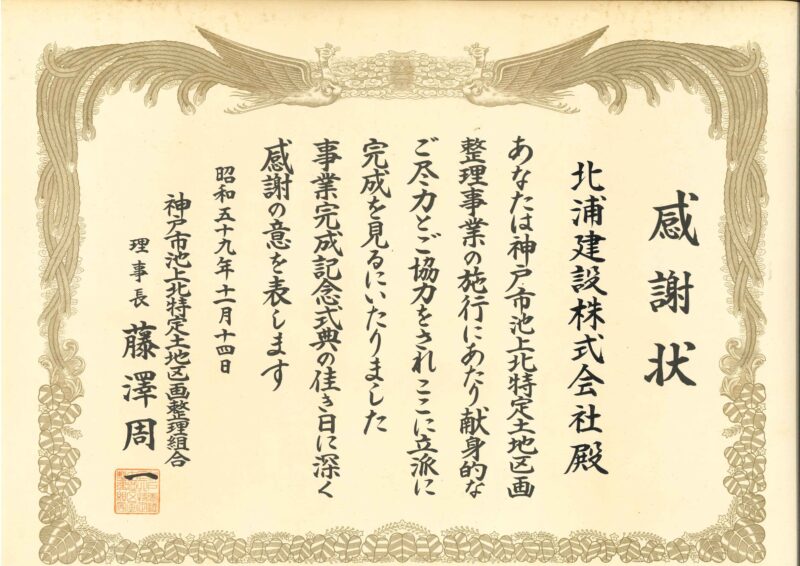 感謝状
北浦建設株式会社殿
あなたは神戸市池上北特定土地区画
整理事業の施行にあたり献身的な
ご尽力とご協力をされここに立派に
完成を見るにいたりました
事業完成記念式典の佳き日に深く
感謝の意を表します
昭和五十九年十一月十四日
神戸市池上北特定土地区画整理組合
理事長 藤澤周一